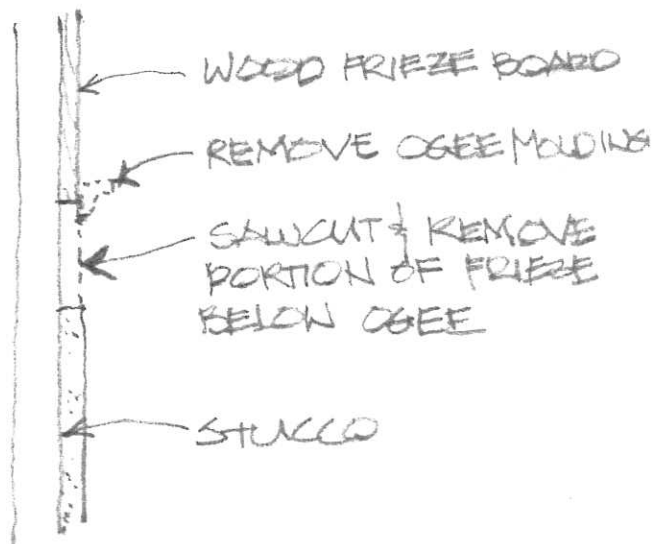 WOOD FRIEZE BOARD
REMOVE OGEE MOLDING
SAWCUT & REMOVE
PORTION OF FRIEZE
BELOW OGEE
STUCCO